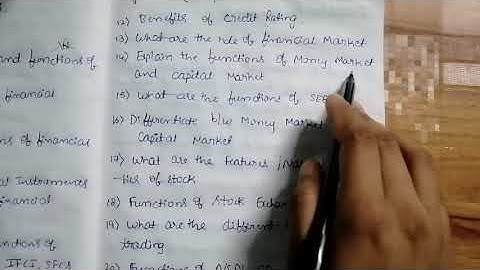 1st
and functions of
financial
ns of financial
al Instruments
financial
nctions of
IFCI, SFCs
12) Benefits of Credit Rating
13) What are the role of financial Market
14) Explain the functions of Money Market
and capital Market
15) What are the functions of SEB
16) Differentiate b/w Money Market
Capital Market
17) What are the features
-ties of stock
18) Functions of Stock Exchan
19) What are the different
trading
20) Functions of